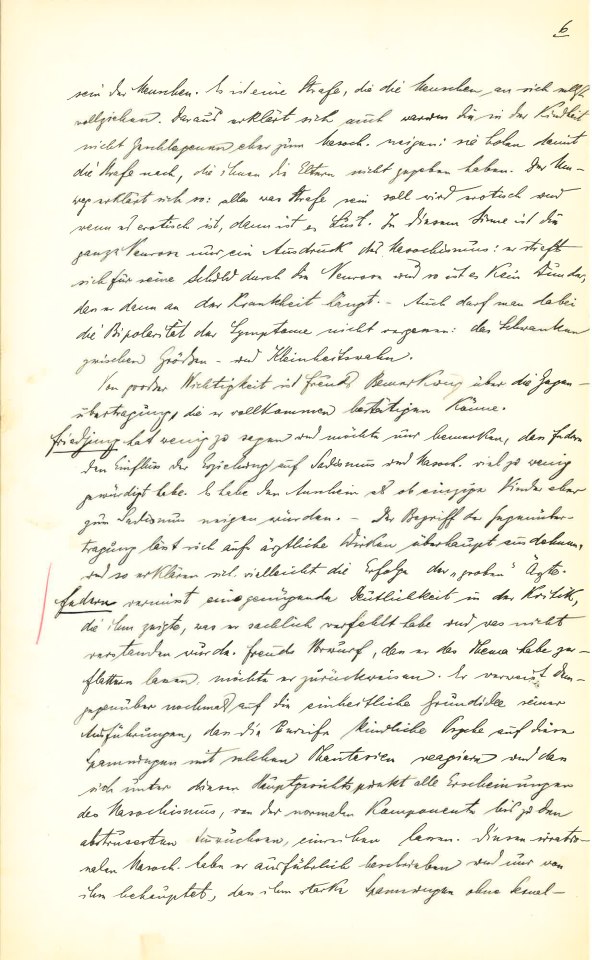 6
sein des Menschen. Es ist eine Strafe, die die Menschen an sich selbst
vollziehen. Daraus erklärt sich auch warum die in der Kindheit
nicht Geschlagenen eher zum Masoch. neigen: sie holen damit
die Strafe nach, die ihnen die Eltern nicht gegeben haben. Der
erklärt sich so: alles was Strafe sein soll wird erotisch und
wenn es erotisch ist, dann ist es Lust. In diesem Sinne ist die
ganze Neurose nur ein Ausdruck des Masochismus: er straft
sich für seine Schuld durch die Neurose und so ist es kein Wunder,
dass er dann an der Krankheit hängt. – Auch darf man dabei
die Bipolarität der Symptome nicht vergessen: das Schwanken
zwischen Größen- und Kleinheitswahn.
Von großer Wichtigkeit ist Freuds Bemerkung über die Gegen-
übertragung, die er vollkommen bestätigen könne.
Friedjung hat wenig zu sagen und möchte nur bemerken, dass Federn
den Einfluss der Erziehung auf Sadismus und Masoch. viel zu wenig
gewürdigt habe. Es habe den Anschein als ob einzige Kinder eher
zum Sadismus neigen würden. – Der Begriff der Gegenüber-
tragung lässt sich aufs ärztliche Wirken überhaupt ausdehnen,
und so erklären sich vielleicht die Erfolge der „groben“ Ärzte.
Federn vermisst eine genügende Deutlichkeit in der Kritik,
die ihm zeigte, was er sachlich verfehlt habe und was nicht
verstanden wurde. Freuds Vorwurf, dass er das Thema habe zer-
flattern lassen, möchte er zurückweisen. Er verweist dem-
gegenüber nochmals auf die einheitliche Grundidee seiner
Ausführungen, dass die unreife kindliche Psyche auf diese
Spannungen mit solchen Phantasien reagiere und dass
sich unter diesem Hauptgesichtspunkt alle Erscheinungen
des Masochismus, von der normalen Komponente bis zu den
abstrusesten Auswüchsen, einreihen lassen. Diesen
Masoch. habe er ausführlich beschrieben und nur von
ihm behauptet, dass ihm starke Spannungen ohne Sexual-